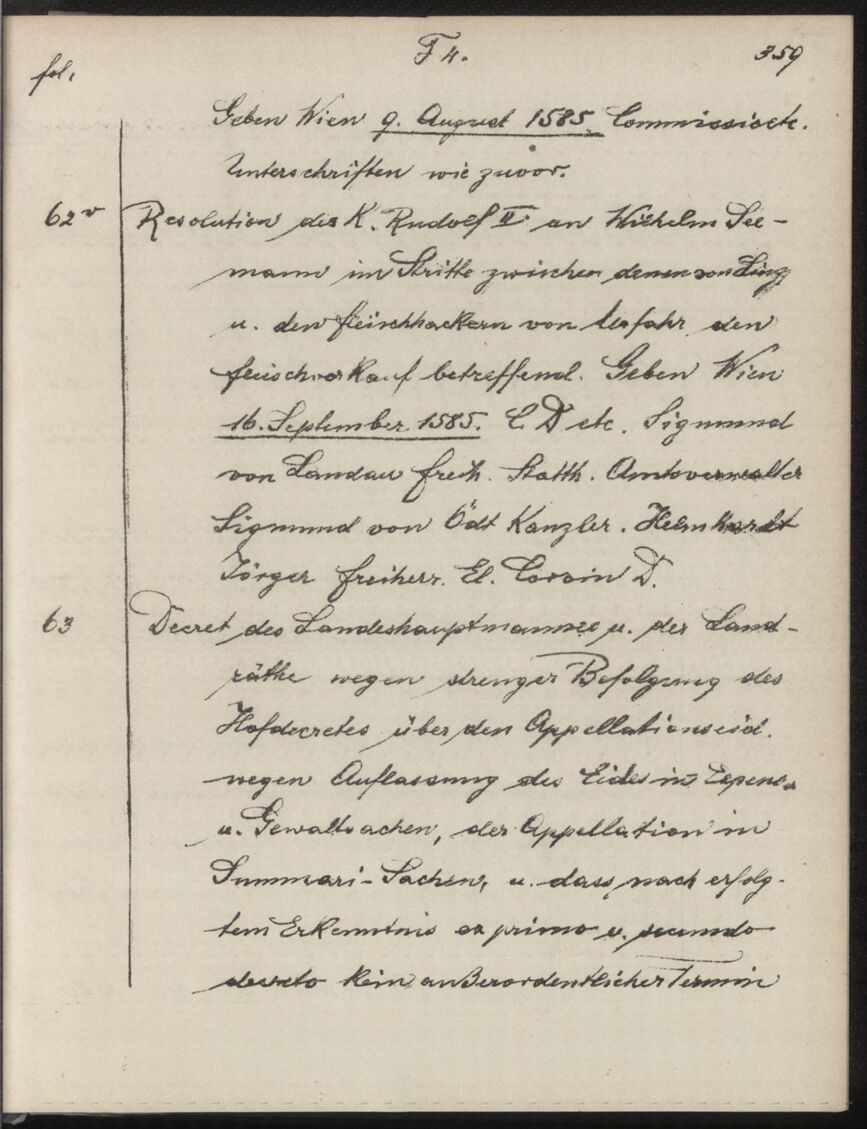 F 4. 359
fol.
Geben Wien 9. August 1585. Commissio etc.
Unterschriften wie zuvor.
62v Resolution des K. Rudolf II. an Wilhelm See-
mann im Stritte zwischen denen von Linz
u. den Fleischhackern von Urfahr den
Fleischverkauf betreffend. Geben Wien
16. September 1585. C D etc. Sigmund
von Landau Freih. Statth. Amtsverwalter
Sigmund von Ödt Kanzler. Helmhardt
Jörger Freiherr. El. Corvin D.
63 Decret des Landeshauptmannes u. der Land-
räthe wegen strenger Befolgung des
Hofdecretes über den Appellationseid.
wegen Auflassung des Eides in Expens-
u. Gewaltsachen, der Appellation in
Summari-Sachen, u. dass nach erfolg-
tem Erkenntnis ex primo u. secundo
decreto kein außerordentlicher Termin